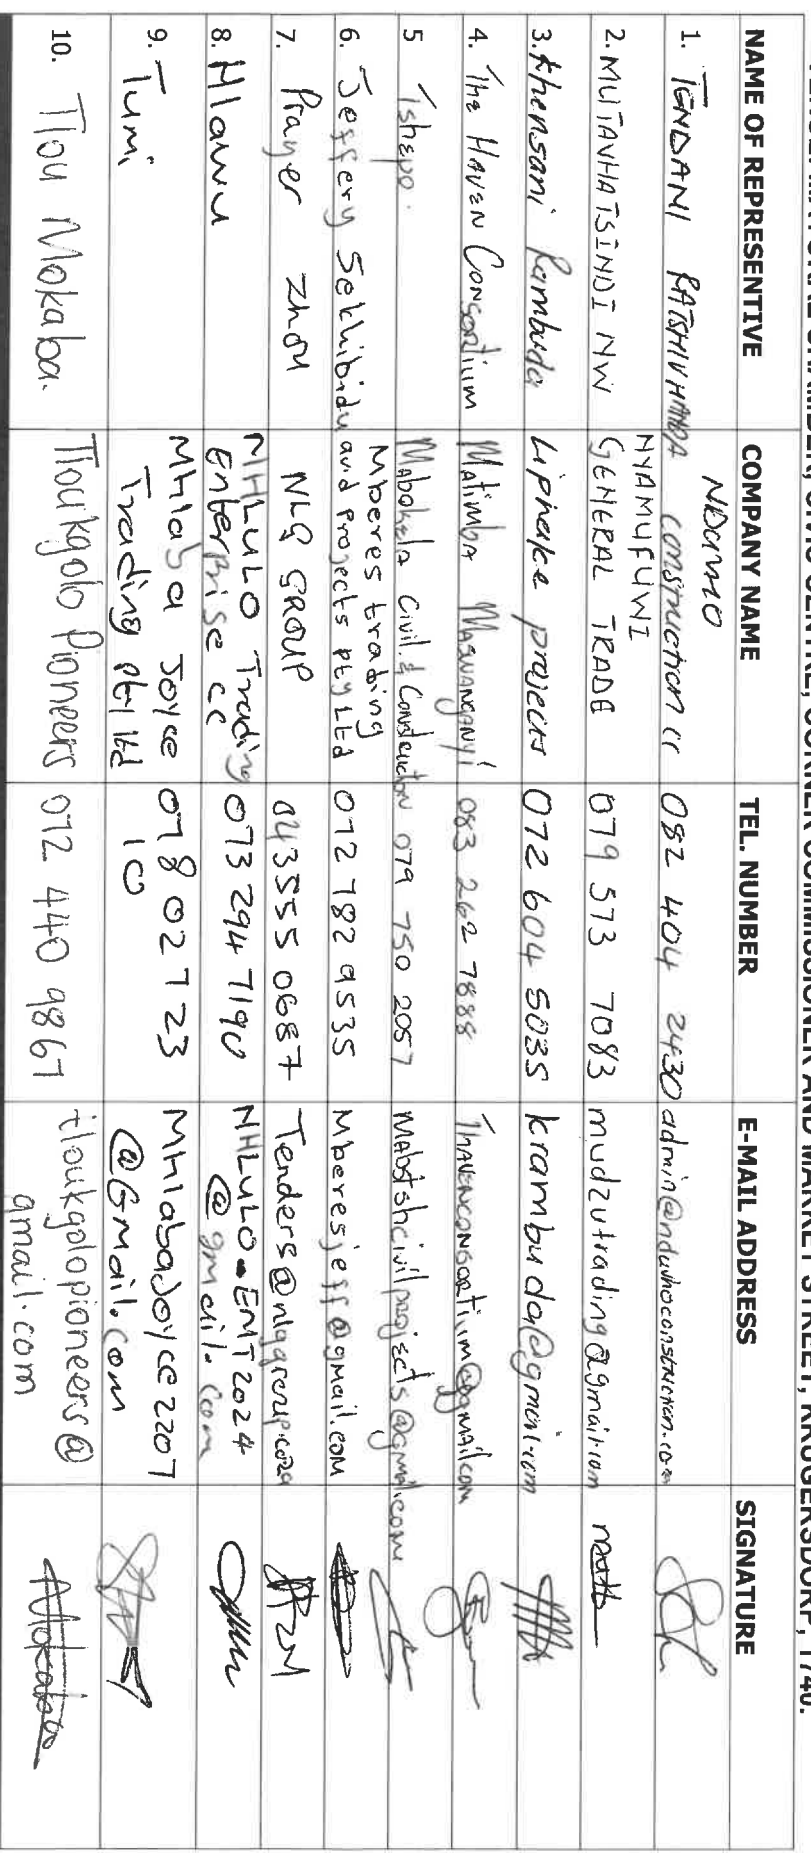 CORNER COMMISSIONER AND MARKET STREET, KRUGERSDORP, 1740.
NAME OF REPRESENTIVE COMPANY NAME TEL. NUMBER E-MAIL ADDRESS SIGNATURE
1. TENDANI RATSHIVHANDA NDUVHO construction cc 082 404 2430 admin@nduvhoconstruction.co.za
2. MUTAVHATSINDI NW NYAMUFUWI
GENERAL TRADE 079 573 7083 mudzutrading@gmail.com
3. Khensani Rambuda Liphake projects 072 604 5035 krambuda@gmail.com
4. The Haven Consortium Matimba Maswanganyi 083 262 7888 Thavenconsortium@gmail.com
5 Tshepo. Mabokela Civil & Construction 079 750 2057 Mabotshcivilprojects@gmail.com
6. Jeffery Sekhibidu Mberes trading
and projects pty Ltd 072 782 9535 Mberesjeff@gmail.com
7. Prayer Zhou NLG GROUP 043555 0687 Tenders@nlggroup.co.za
8. Hlawu NHLULO Trading
Enterprise cc 073 294 7190 NHLULO-EMT2024
@gmail.com
9. Tumi Mhlaba Joyce
Trading pty ltd 078 02723
10 MhlabaJoyce2207
@Gmail.com
10. Tlou Mokaba. Tloukgolo Pioneers 072 440 9867 tloukgolopioneers@
gmail.com
Mokaba